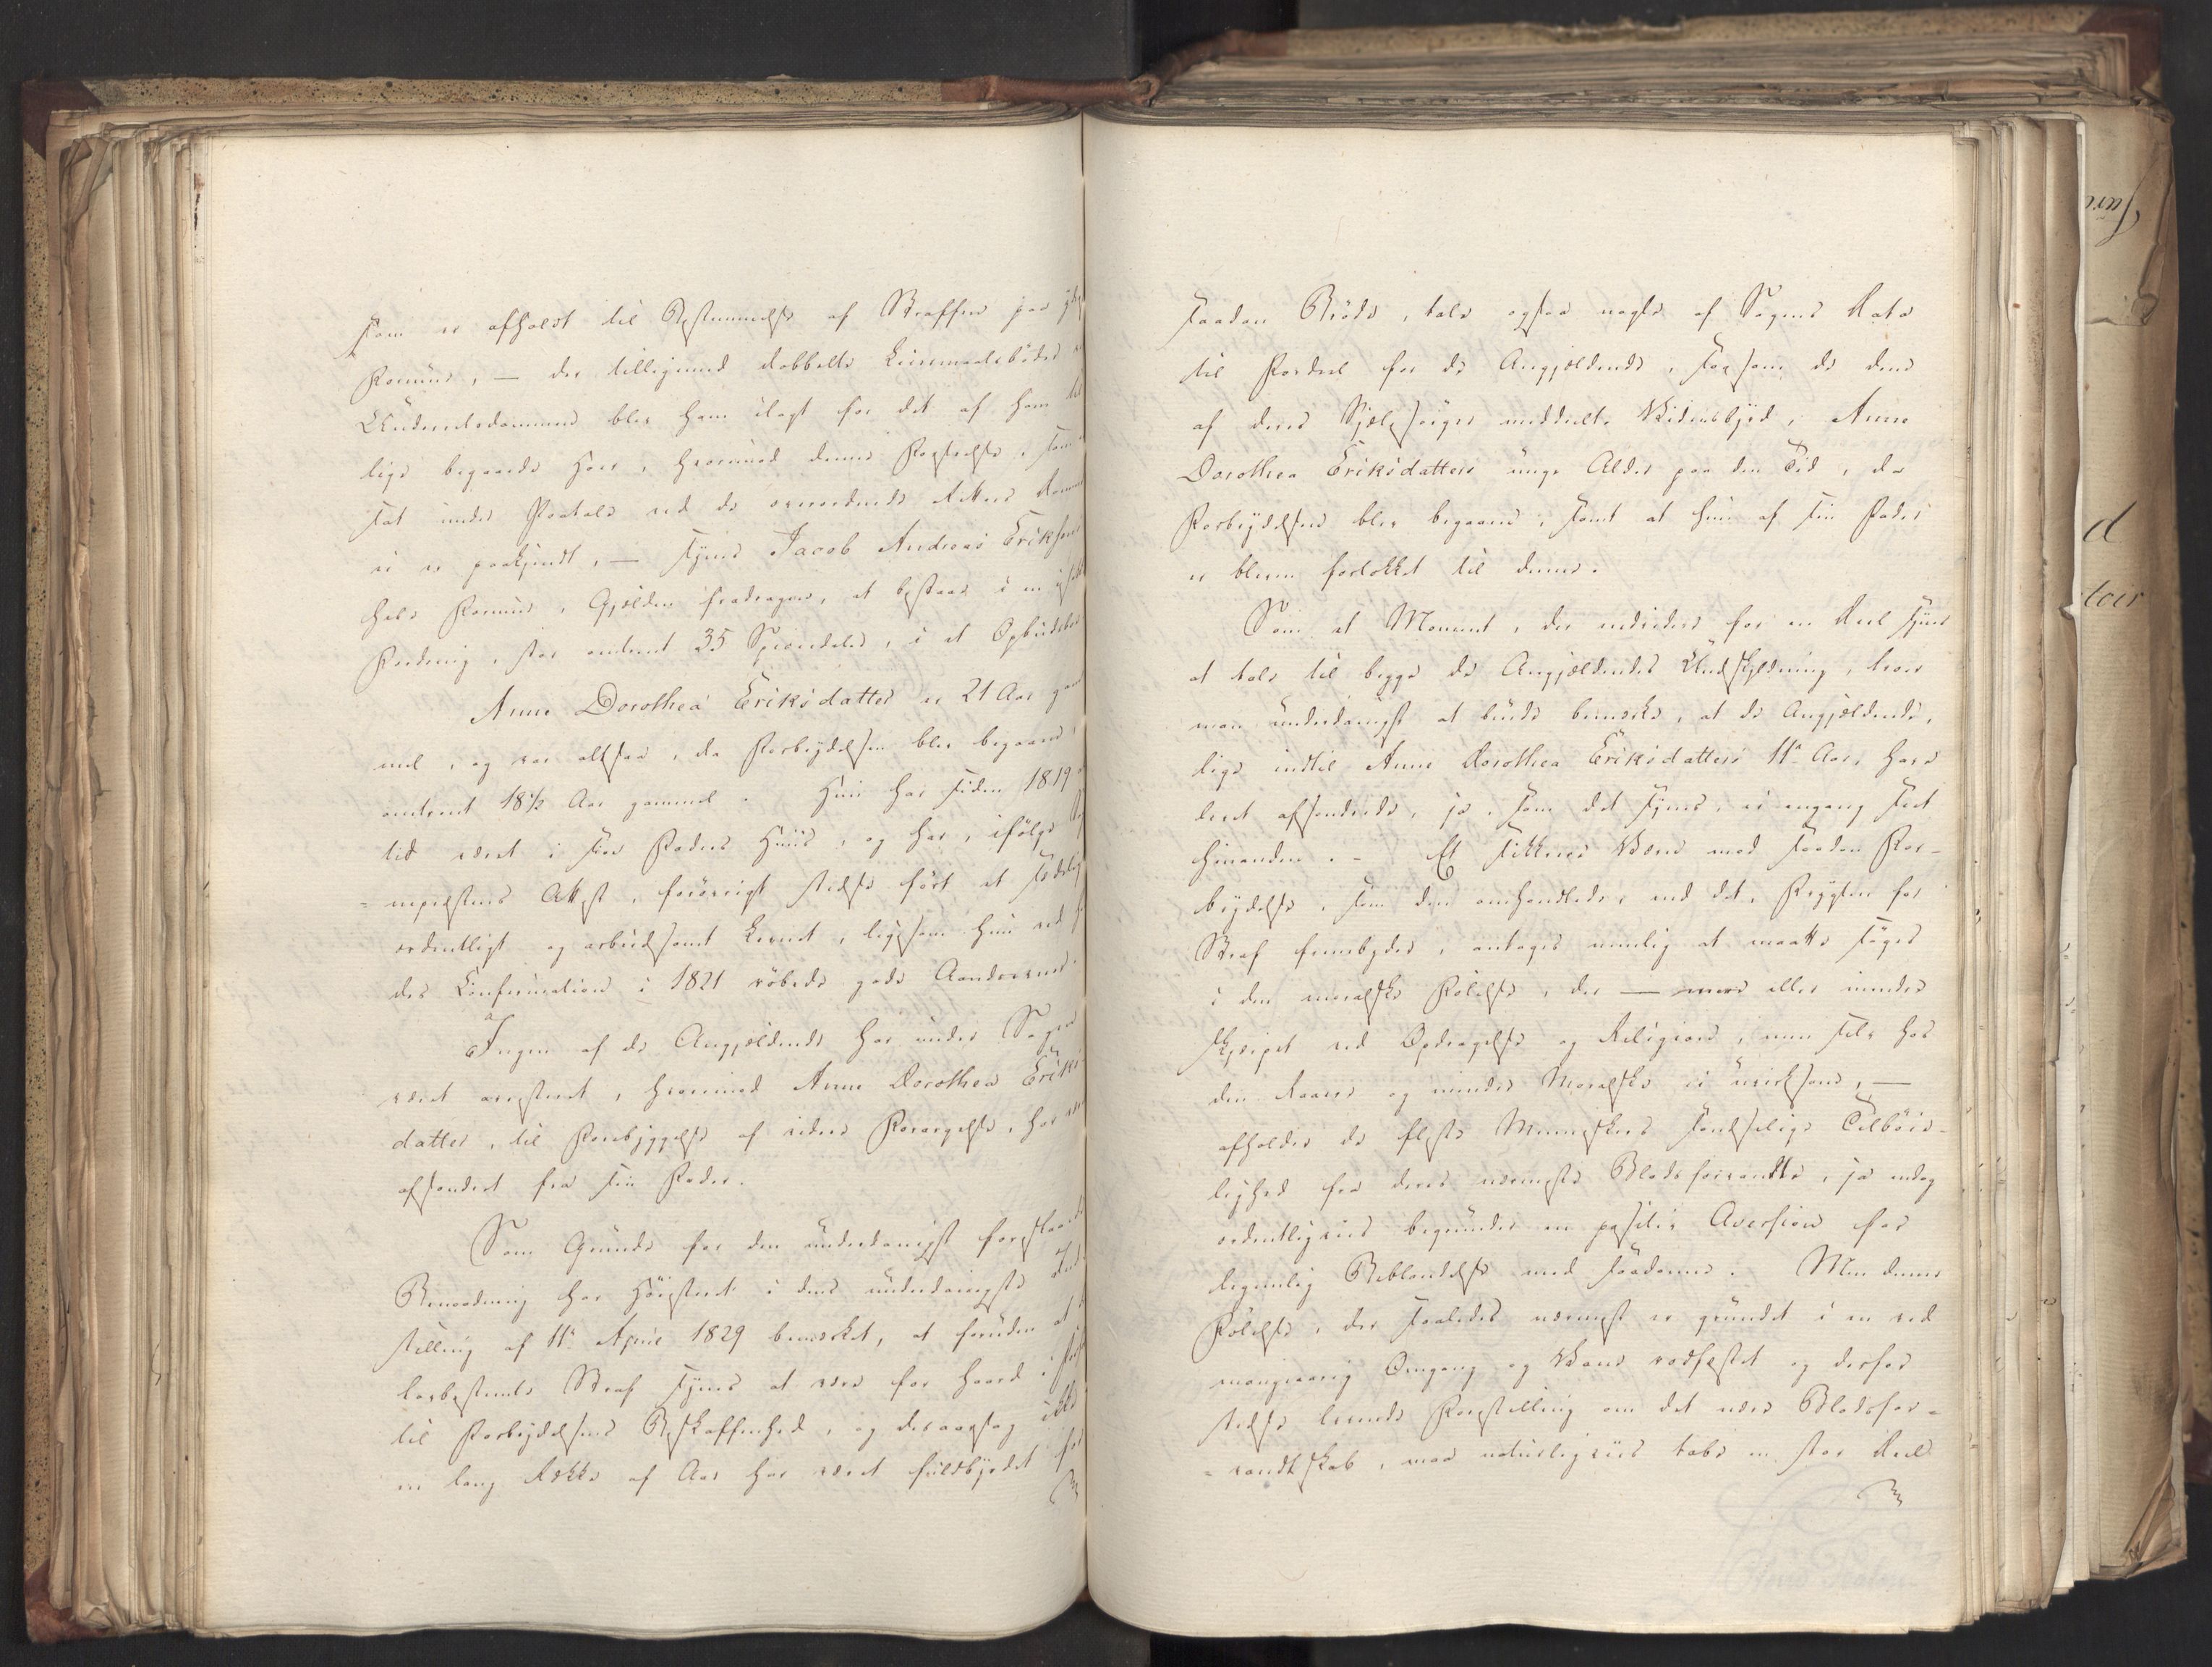 som er afholdt til Bestemmelse af Straffen for
Formue, — der tilligemed dobbelte Leiermaalsbøder
Underretsdommen blev ham ilagt for det af ham
lige begaaede Hoer, hvorimod denne Forseelse, som
sat under Paatale ved de overordnede Retter
ei er paakjendt, — synes Jacob Andreas Eriksens
hele Formue, Gjelden fradragen, at bestaae i en
Fordring, stor omtrent 35 Speciedaler, i et Opbudsboe
Anne Dorothea Eriksdatter er 21 Aar gam
mel, og var altsaa, da Forbrydelsen blev begaaet,
omtrent 18½ Aar gammel. Hun har siden 1819
tid været i sin Faders Huus, og har, ifølge
nepræstens Attest, forøvrigt stedse ført et
ordentligt og arbeidsomt Levnet, ligesom hun ved
des Confirmation i 1821 røbede gode Aandsevner.
Ingen af de Angjeldende har under Sagen
været arresteret, hvorimod Anne Dorothea Eriks
datter, til Forebyggelse af videre Forargelse, har
afsondret fra sin Fader.
Som Grunde for den underdanigst foreslaaede
Benaadning har Høiesteret i dens underdanigste
stilling af 11te April 1829 bemærket, at foruden at
lovbestemte Straf synes at være for haard i
til Forbrydelsens Beskaffenhed, og desaarsag ikke
en lang Række af Aar har været fuldbyrdet for
saadan Brøde, tale ogsaa nogle af Sagens Data
til Fordeel for de Angjeldende, saasom de dem
af deres Sjelesørger meddeelte Vidnesbyrd, Anne
Dorothea Eriksdatters unge Alder paa den Tid, da
Forbrydelsen blev begaaet, samt at hun af sin Fader
er bleven forlokket til denne.
Som et Moment, der endvidere for en Deel synes
at tale til begge de Angjeldendes Undskyldning, troer
man underdanigst at burde bemærke, at de Angjeldende,
lige indtil Anne Dorothea Eriksdatters 11te Aar, have
levet afsondrede, ja, som det synes, ei engang seet
hinanden. - Et sikkert Værn mod saadan For-
brydelse, som den omhandlede, end det, Frygten for
Straf frembyder, antages nemlig at maatte søges
i den moralske Følelse, der — meer eller mindre
skjærpet ved Opdragelse og Religion, men selv hos
den Raaere og mindre Moralske ei uvirksom, —
afholder de fleste Mennesker sandselige Tilbøie-
lighed fra deres nærmeste Blodsforvandte, ja endog
ordentligviis begrunder en positiv Aversion for
legemlig Beblandelse med saadanne. Men denne
Følelse, der saaledes nærmest er grundet i en ved
mangeaarig Omgang og Vane rodfæstet og derfor
stedse levende Forestilling om det nære Blodsfor-
-vandtskab, maa naturligviis tabe en stor Deel